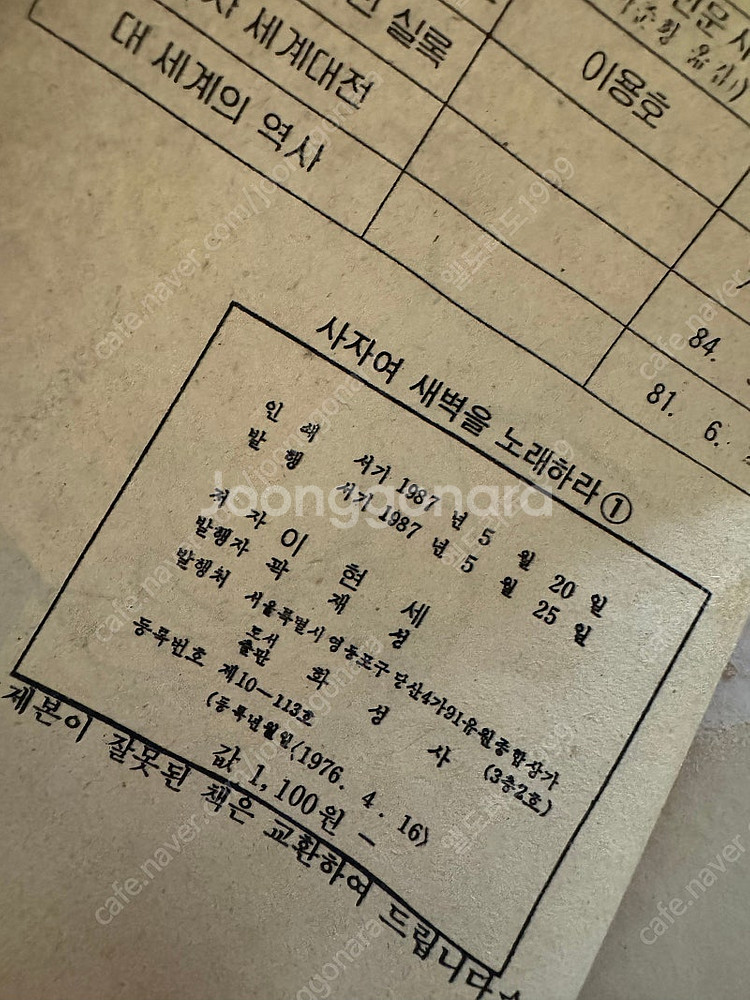 실록
세계대전
대 세계의 역사
이용호
84.
81. 6.
사자여 새벽을 노래하라 ①
인 쇄 서기 1987 년 5 월 20 일
발 행 서기 1987 년 5 월 25 일
저 자 이 현 세
발행자 곽 재 성
발행처 서울특별시 영등포구 당산4가91유원종합상가
(3층2호)
도서출판 화 성 사
등록번호 제10－113호
(등록년월일(1976. 4. 16)
값 1,100원 －
제본이 잘못된 책은 교환하여 드립니다
Joonggonara
cafe.naver.com/joonggonara
월드카드1999